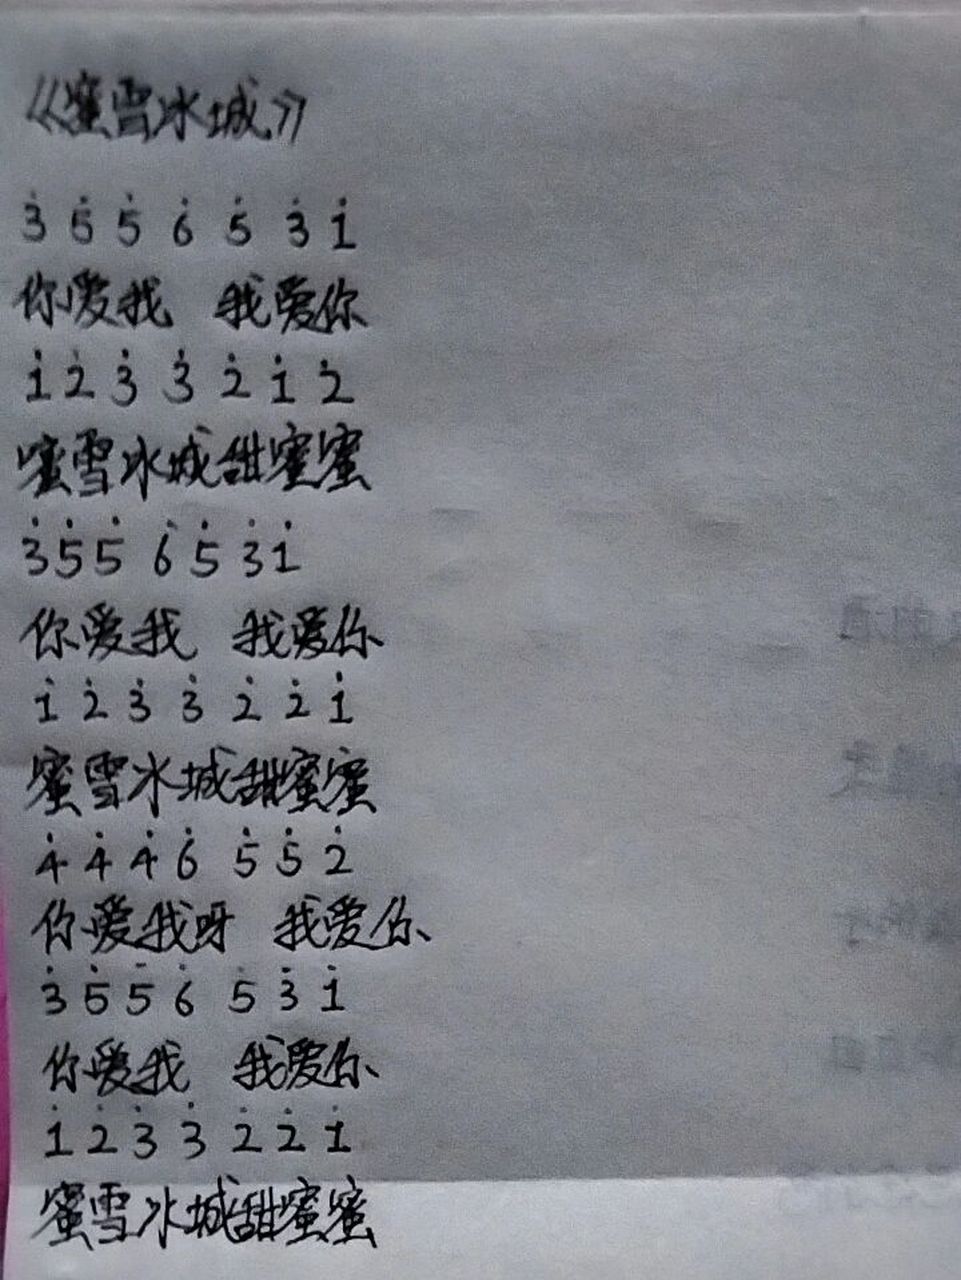 《蜜雪冰城》
3̇ 5̇ 5̇ 6̇ 5̇ 3̇ 1̇
你爱我 我爱你
1̇ 2̇ 3̇ 3̇ 2̇ 1̇ 2̇
蜜雪冰城甜蜜蜜
3̇ 5̇ 5̇ 6̇ 5̇ 3̇ 1̇
你爱我 我爱你
1̇ 2̇ 3̇ 3̇ 2̇ 2̇ 1̇
蜜雪冰城甜蜜蜜
4̇ 4̇ 4̇ 6̇ 5̇ 5̇ 2̇
你爱我呀 我爱你
3̇ 5̇ 5̇ 6̇ 5̇ 3̇ 1̇
你爱我 我爱你
1̇ 2̇ 3̇ 3̇ 2̇ 2̇ 1̇
蜜雪冰城甜蜜蜜